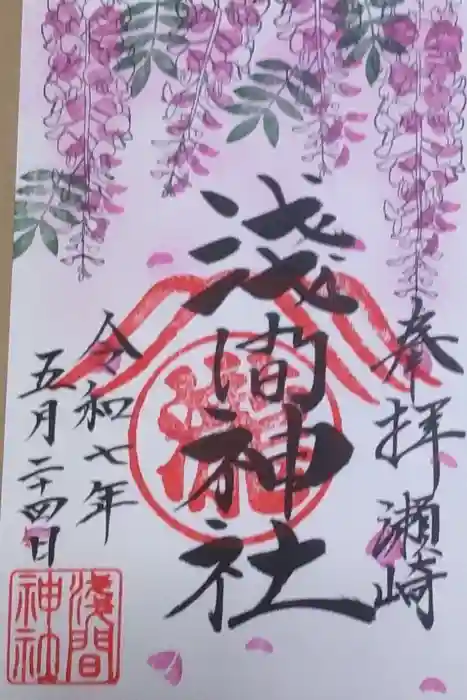 奉拝 瀬崎
浅間神社
令和七年
五月二十四日
浅間
神社